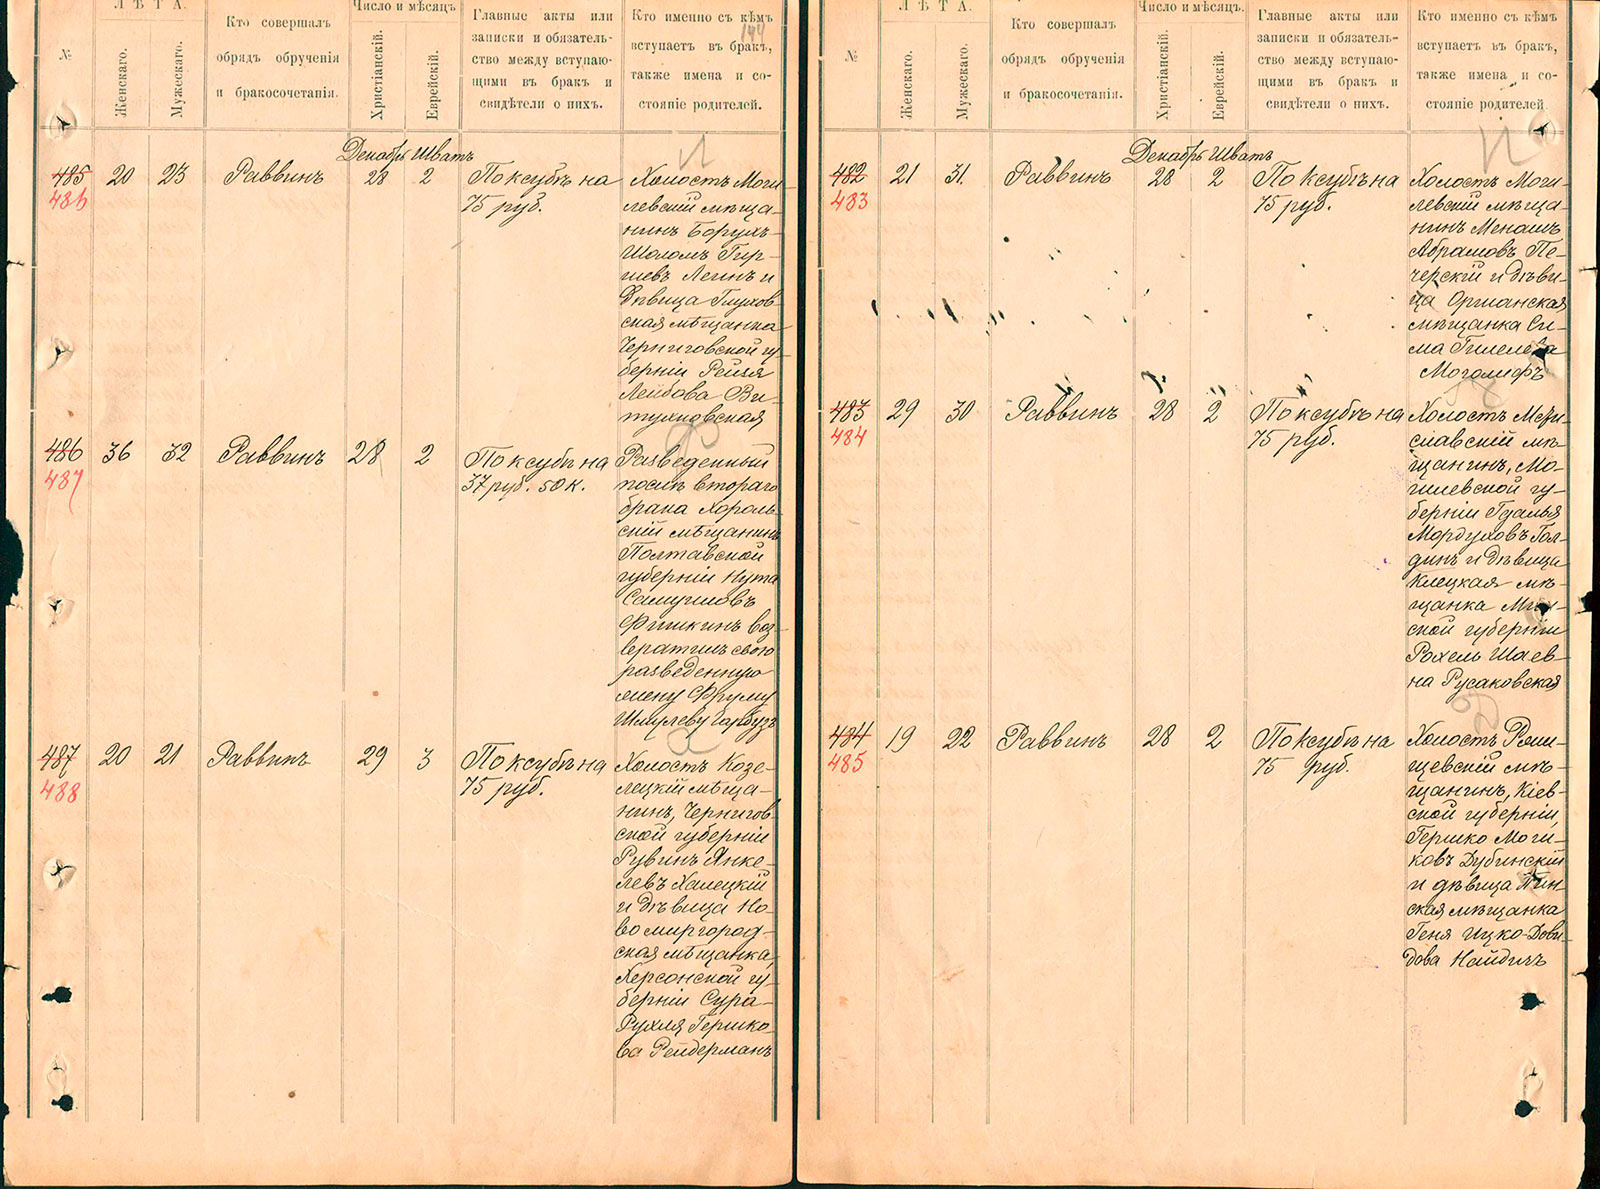 ЛѢТА.
Число и мѣсяцъ.
№
Женскаго.
Мужескаго.
Кто совершалъ
обрядъ обрученія
и бракосочетанія.
Христіанскій.
Еврейскій.
Главные акты или
записки и обязатель-
ство между вступаю-
щими въ бракъ и
свидѣтели о нихъ.
Кто именно съ кѣмъ
вступаетъ въ бракъ,
также имена и со-
стояніе родителей.
144
Декабрь Шватъ
485 20 23 Раввинъ 28 2
486
По ксубѣ на
75 руб.
Холостъ Моги-
левскій мѣща-
нинъ Борухъ-
Шоломъ Гир-
шевъ Легинъ и
дѣвица Глухов-
ская мѣщанка
Черниговской гу-
берніи Рейзя
Лейбова Ви-
тухновская
486 36 32 Раввинъ 28 2
487
По ксубѣ на
37 руб. 50 к.
Разведенный
послѣ втораго
брака Хороль-
скій мѣщанинъ
Полтавской
губерніи Нута
Самуиловъ
Фишкинъ воз-
вератилъ свою
разведенную
жену Фруму
Шмулеву Гарбузъ
487 20 21 Раввинъ 29 3
488
По ксубѣ на
75 руб.
Холостъ Козе-
лецкій мѣща-
нинъ, Чернигов-
ской губерніи
Рувинъ Янке-
левъ Халецкій
и дѣвица Но-
вомиргород-
ская мѣщанка,
Херсонской гу-
берніи Сура-
Рухля Гершко-
ва Рейдерманъ
ЛѢТА.
Число и мѣсяцъ.
№
Женскаго.
Мужескаго.
Кто совершалъ
обрядъ обрученія
и бракосочетанія.
Христіанскій.
Еврейскій.
Главные акты или
записки и обязатель-
ство между вступаю-
щими въ бракъ и
свидѣтели о нихъ.
Кто именно съ кѣмъ
вступаетъ въ бракъ,
также имена и со-
стояніе родителей
Декабрь Шватъ
482 21 31. Раввинъ 28 2
483
По ксубѣ на
75 руб.
Холостъ Моги-
левскій мѣща-
нинъ Менашъ
Абрамовъ Пе-
черскій и дѣви-
ца Оршанская
мѣщанка Си-
ма Гилелева
Моголифъ
483 29 30 Раввинъ 28 2
484
По ксубѣ на
75 руб.
Холостъ Мсти-
славскій мѣ-
щанинъ, Мо-
гилевской гу-
берніи Гдалья
Мордуховъ Гол-
динъ и дѣвица
Клецкая мѣ-
щанка Мин-
ской губерніи
Рохель Шаев-
на Русаковская
484 19 22 Раввинъ 28 2
485
По ксубѣ на
75 руб.
Холостъ Ржи-
щевскій мѣ-
щанинъ, Кіев-
ской губерніи,
Гершко Моги-
ковъ Дубинскій
и дѣвица Пин-
ская мѣщанка
Геня Ицко-Дови-
дова Найдичъ